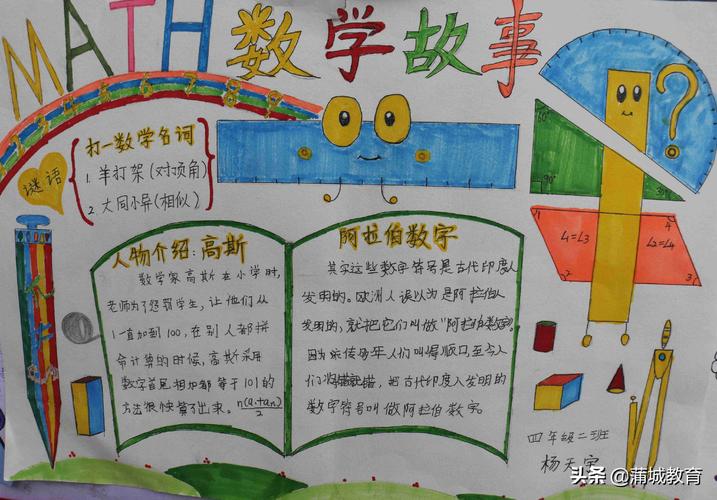 MATH 数学故事
1 2 3 4 5 6 7 8 9
谜语
打一数学名词
1. 羊打架(对顶角)
2. 大同小异(相似)
人物介绍:高斯
数学家高斯在小学时,
老师为了惩罚学生,让他们从
1一直加到100,在别人都拼
命计算的时候,高斯采用
数字首尾相加都等于101的
方法很快算了出来。n(a₁+aₙ)/2
阿拉伯数字
其实这些数字符号是古代印度人
发明的。欧洲人误以为是阿拉伯人
发明的,就把它们叫做“阿拉伯数字”。
因为流传多年人们叫得顺口,至今人
们将错就错,把古代印度人发明的
数学符号叫做阿拉伯数字。
?
60°
90°
30°
1
4
∠1=∠3
∠2=∠4
2
3
四年级二班
头条 @蒲城教育